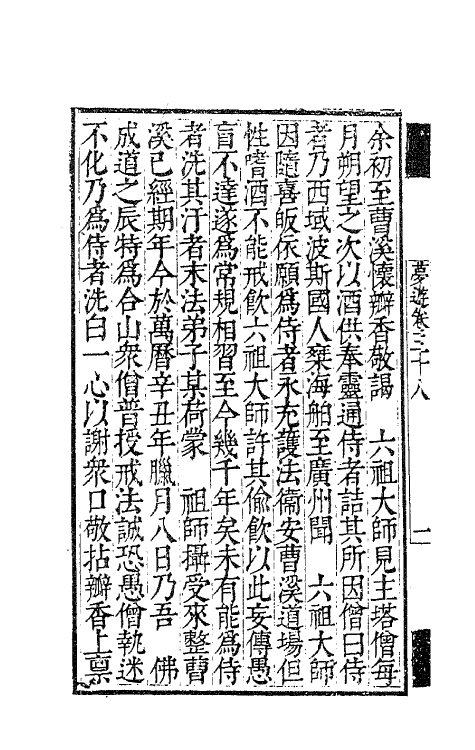 夢遊卷三十八
一
余初至曹溪懷瓣香敬謁　六祖大師見主塔僧每
月朔望之次以酒供奉靈通侍者詰其所因僧曰侍
者乃西域波斯國人乘海舶至廣州聞　六祖大師
因隨喜皈依願爲侍者永充護法衞安曹溪道場但
性嗜酒不能戒飲六祖大師許其偷飲以此妄傳愚
盲不達遂爲常規相習至今幾千年矣未有能爲侍
者洗其汙者末法弟子某荷蒙　祖師攝受來整曹
溪已經期年今於萬曆辛丑年臘月八日乃吾　佛
成道之辰特爲合山衆僧普授戒法誠恐愚僧執迷
不化乃爲侍者洗白一心以謝衆口敬拈瓣香上稟